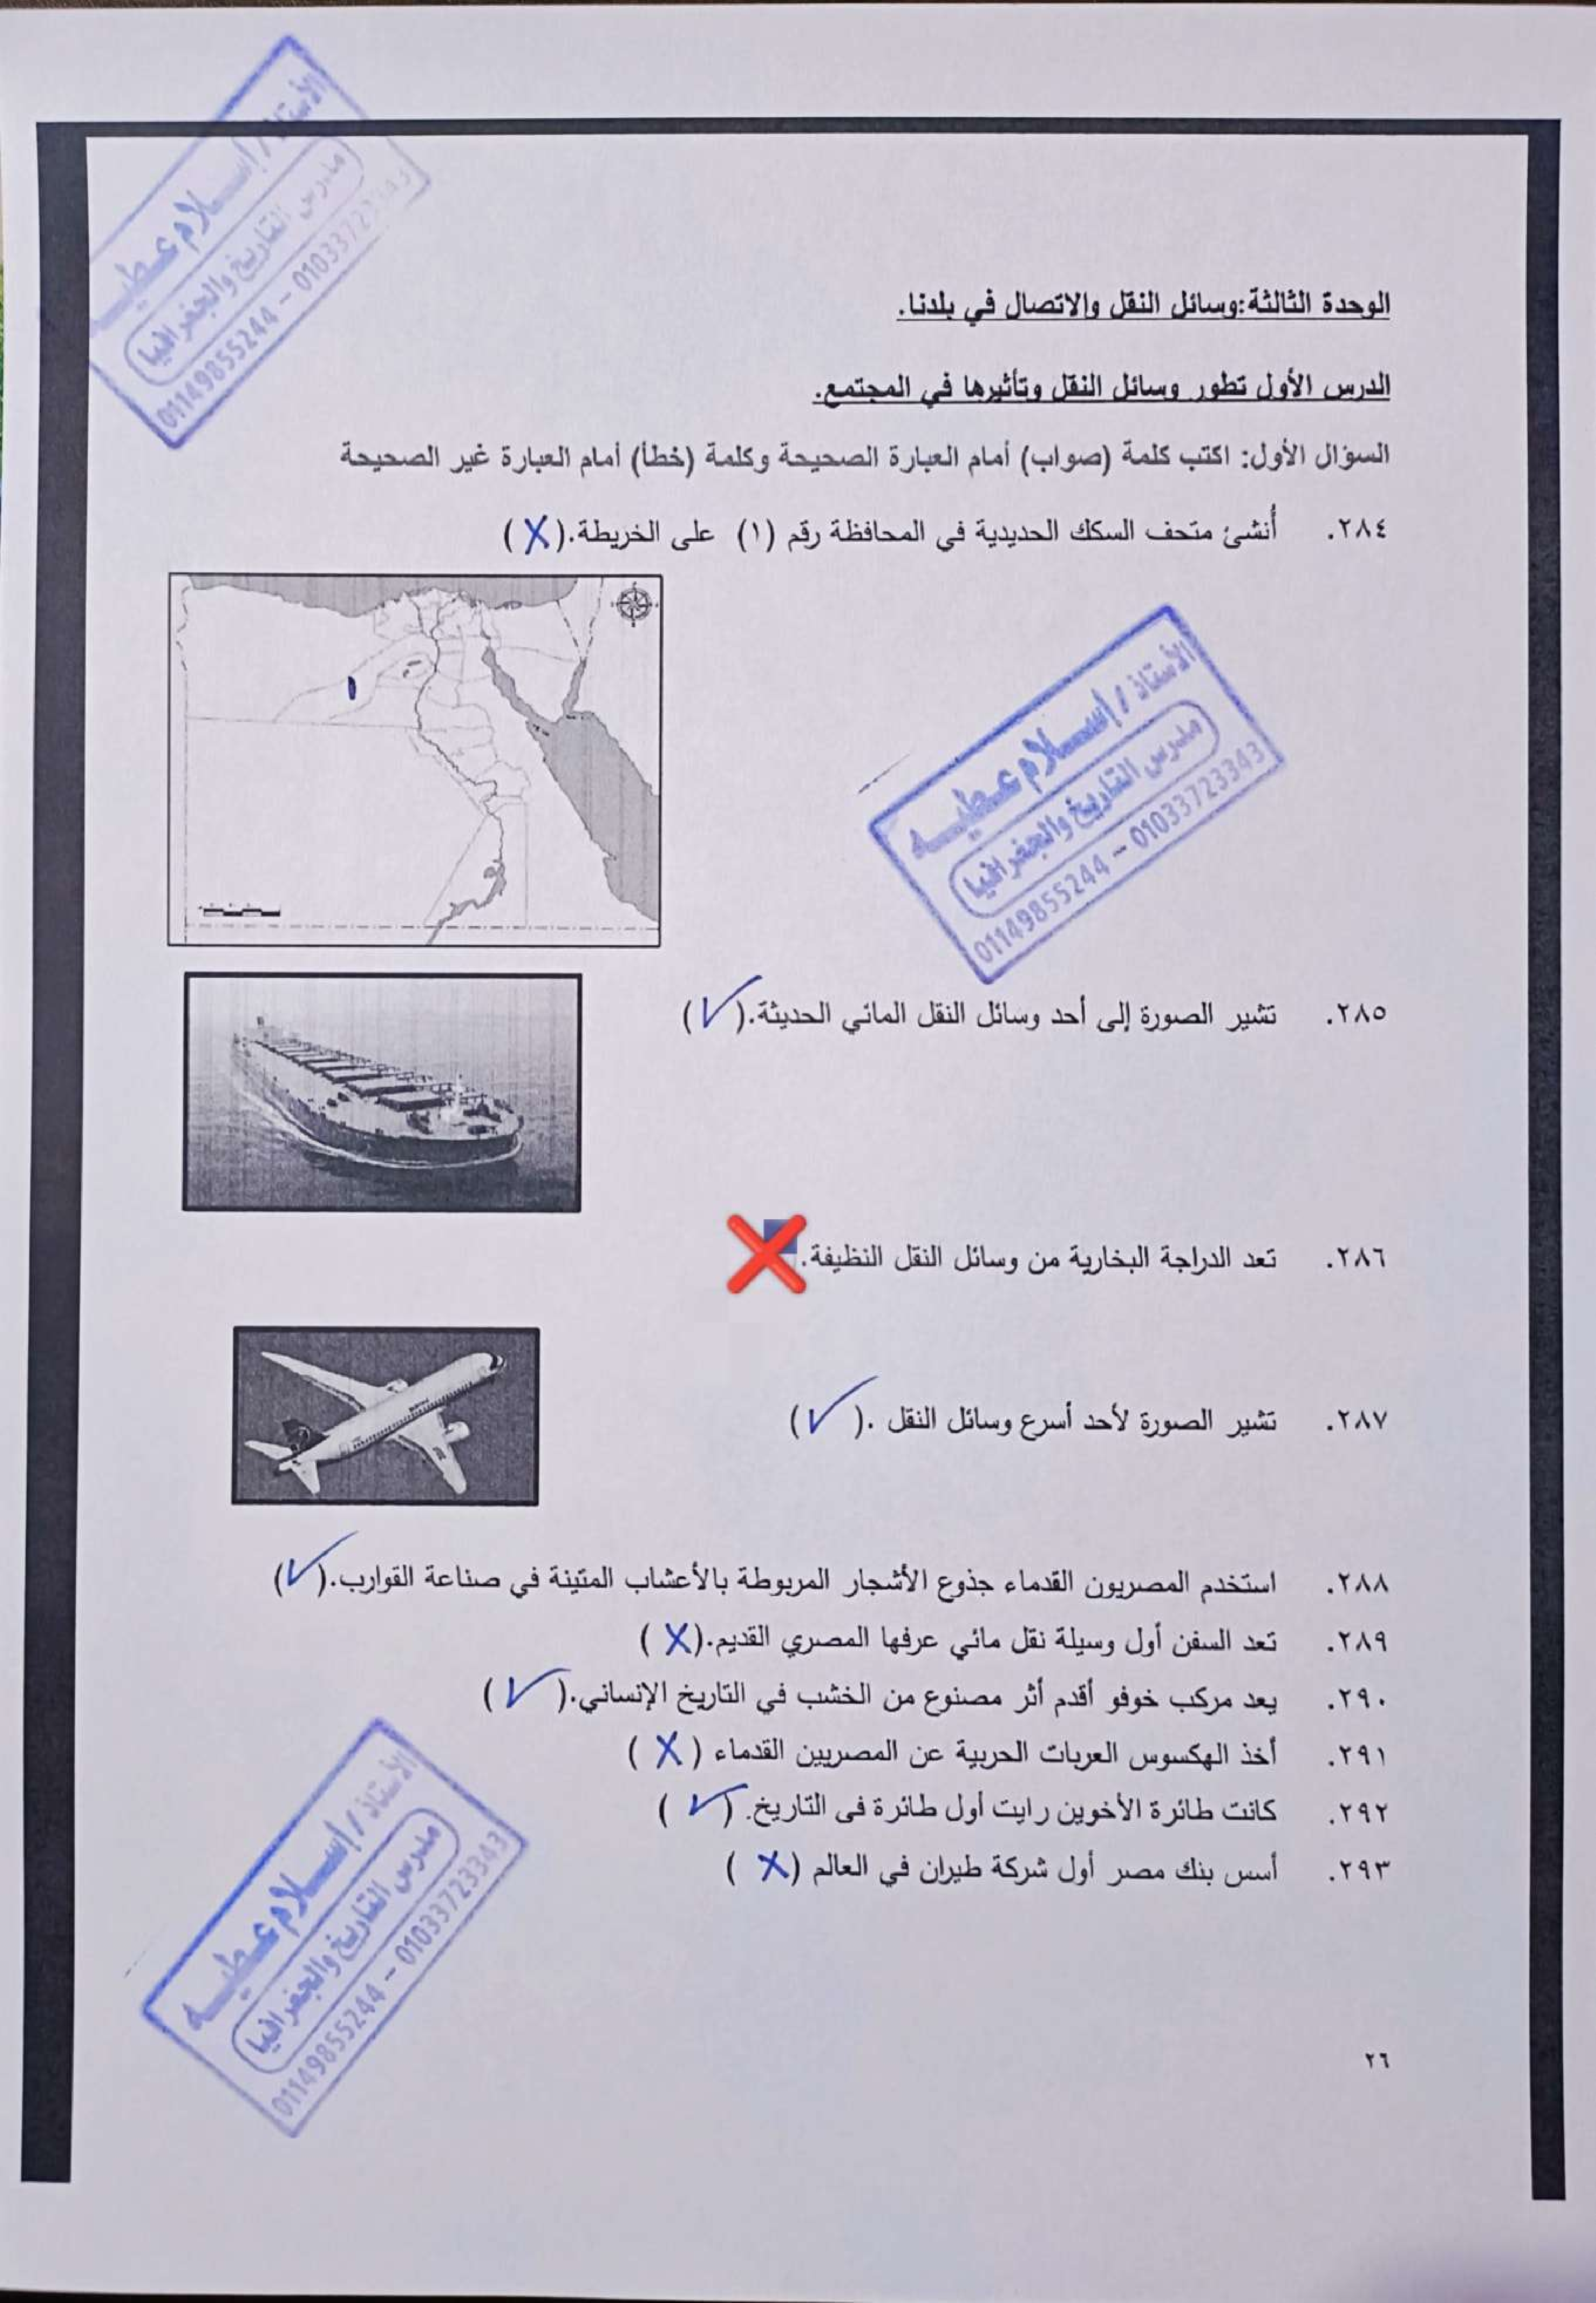 الأستاذ / إسلام عطيه
مدرس التاريخ والجغرافيا
01149855244 – 01033723343
الوحدة الثالثة:وسائل النقل والاتصال في بلدنا.
الدرس الأول تطور وسائل النقل وتأثيرها في المجتمع.
السؤال الأول: اكتب كلمة (صواب) أمام العبارة الصحيحة وكلمة (خطأ) أمام العبارة غير الصحيحة
٢٨٤. أُنشئ متحف السكك الحديدية في المحافظة رقم (١) على الخريطة.(X)
١
الأستاذ / إسلام عطيه
مدرس التاريخ والجغرافيا
01149855244 – 01033723343
٢٨٥. تشير الصورة إلى أحد وسائل النقل المائي الحديثة.(✓)
٢٨٦. تعد الدراجة البخارية من وسائل النقل النظيفة.❌
٢٨٧. تشير الصورة لأحد أسرع وسائل النقل .(✓)
٢٨٨. استخدم المصريون القدماء جذوع الأشجار المربوطة بالأعشاب المتينة في صناعة القوارب.(✓)
٢٨٩. تعد السفن أول وسيلة نقل مائي عرفها المصري القديم.(X)
٢٩٠. يعد مركب خوفو أقدم أثر مصنوع من الخشب في التاريخ الإنساني.(✓)
٢٩١. أخذ الهكسوس العربات الحربية عن المصريين القدماء (X)
٢٩٢. كانت طائرة الأخوين رايت أول طائرة فى التاريخ. (✓)
٢٩٣. أسس بنك مصر أول شركة طيران في العالم (X)
الأستاذ / إسلام عطيه
مدرس التاريخ والجغرافيا
01149855244 – 01033723343
٢٦